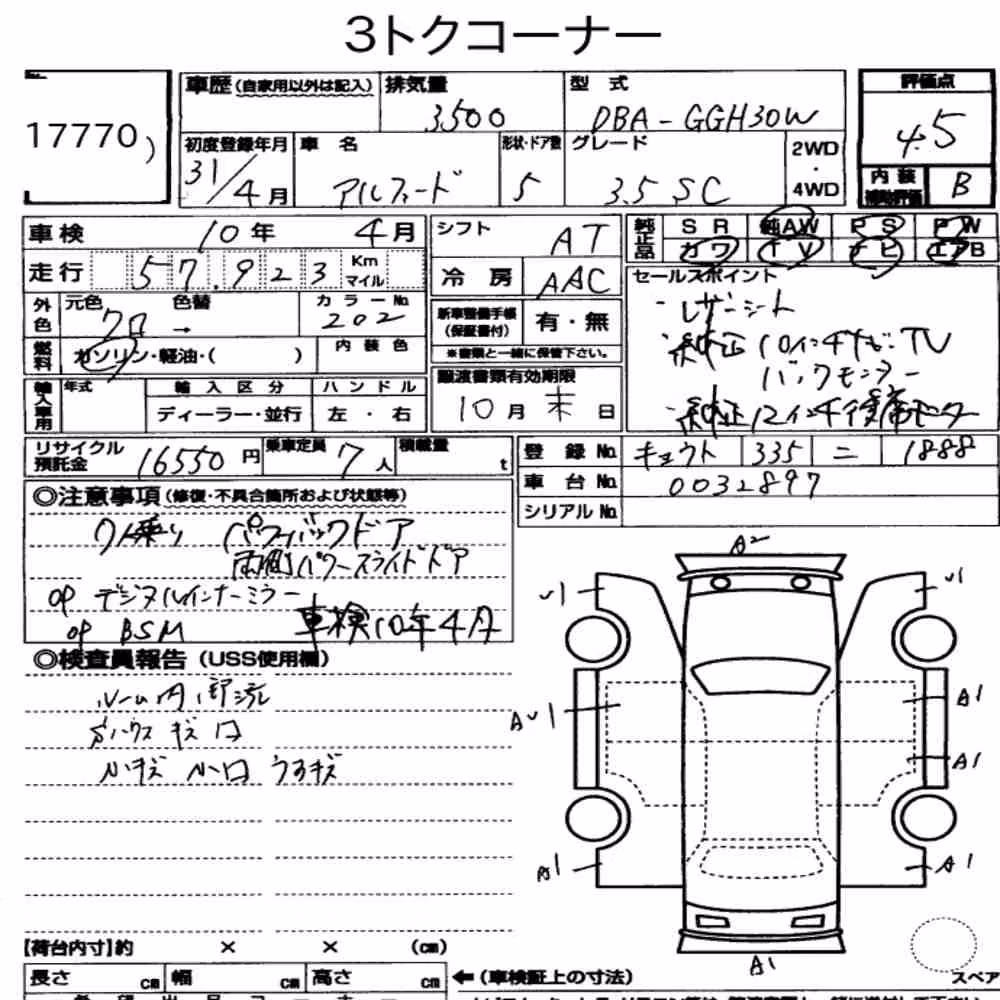 3トクコーナー
17770)
車歴(自家用以外は記入) 排気量 3500 型式 DBA-GGH30W 評価点 4.5
初度登録年月 31/4月 車名 アルファード 形状・ドア数 5 グレード 3.5 SC 2WD・4WD 内装補助評価 B
車検 10年 4月 シフト AT 純正品 SR 純AW PS PW
カワ TV ナビ エアB
走行 57.923 Km マイル 冷房 AAC
セールスポイント
外色 元色 クロ → 色替 カラーNo 202
・レザーシート
新車整備手帳(保証書付) 有・無
燃料 ガソリン・軽油・( ) 内装色
※書類と一緒に保管下さい。
・純正10インチナビTV
バックモニター
・純正12インチ後席モニター
輸入車用 年式 輸入区分 ハンドル
ディーラー・並行 左・右
譲渡書類有効期限
10月 末 日
リサイクル預託金 16550円 乗車定員 7人 積載量 t
登録No. キョウト 335 ニ 1888
車台No. 0032897
シリアルNo.
◎注意事項(修復・不具合箇所および状態等)
7人乗り パワーバックドア
両側パワースライドドア
op デジタルインナーミラー
op BSM 車検10年4月
◎検査員報告(USS使用欄)
ルーム内
キズ
小キズ 小凹
A2
U1
U1
AU1
A1
A1
A1
A1
A1
【荷台内寸】約 × × (cm)
長さ cm 幅 cm 高さ cm ←(車検証上の寸法)
スペア